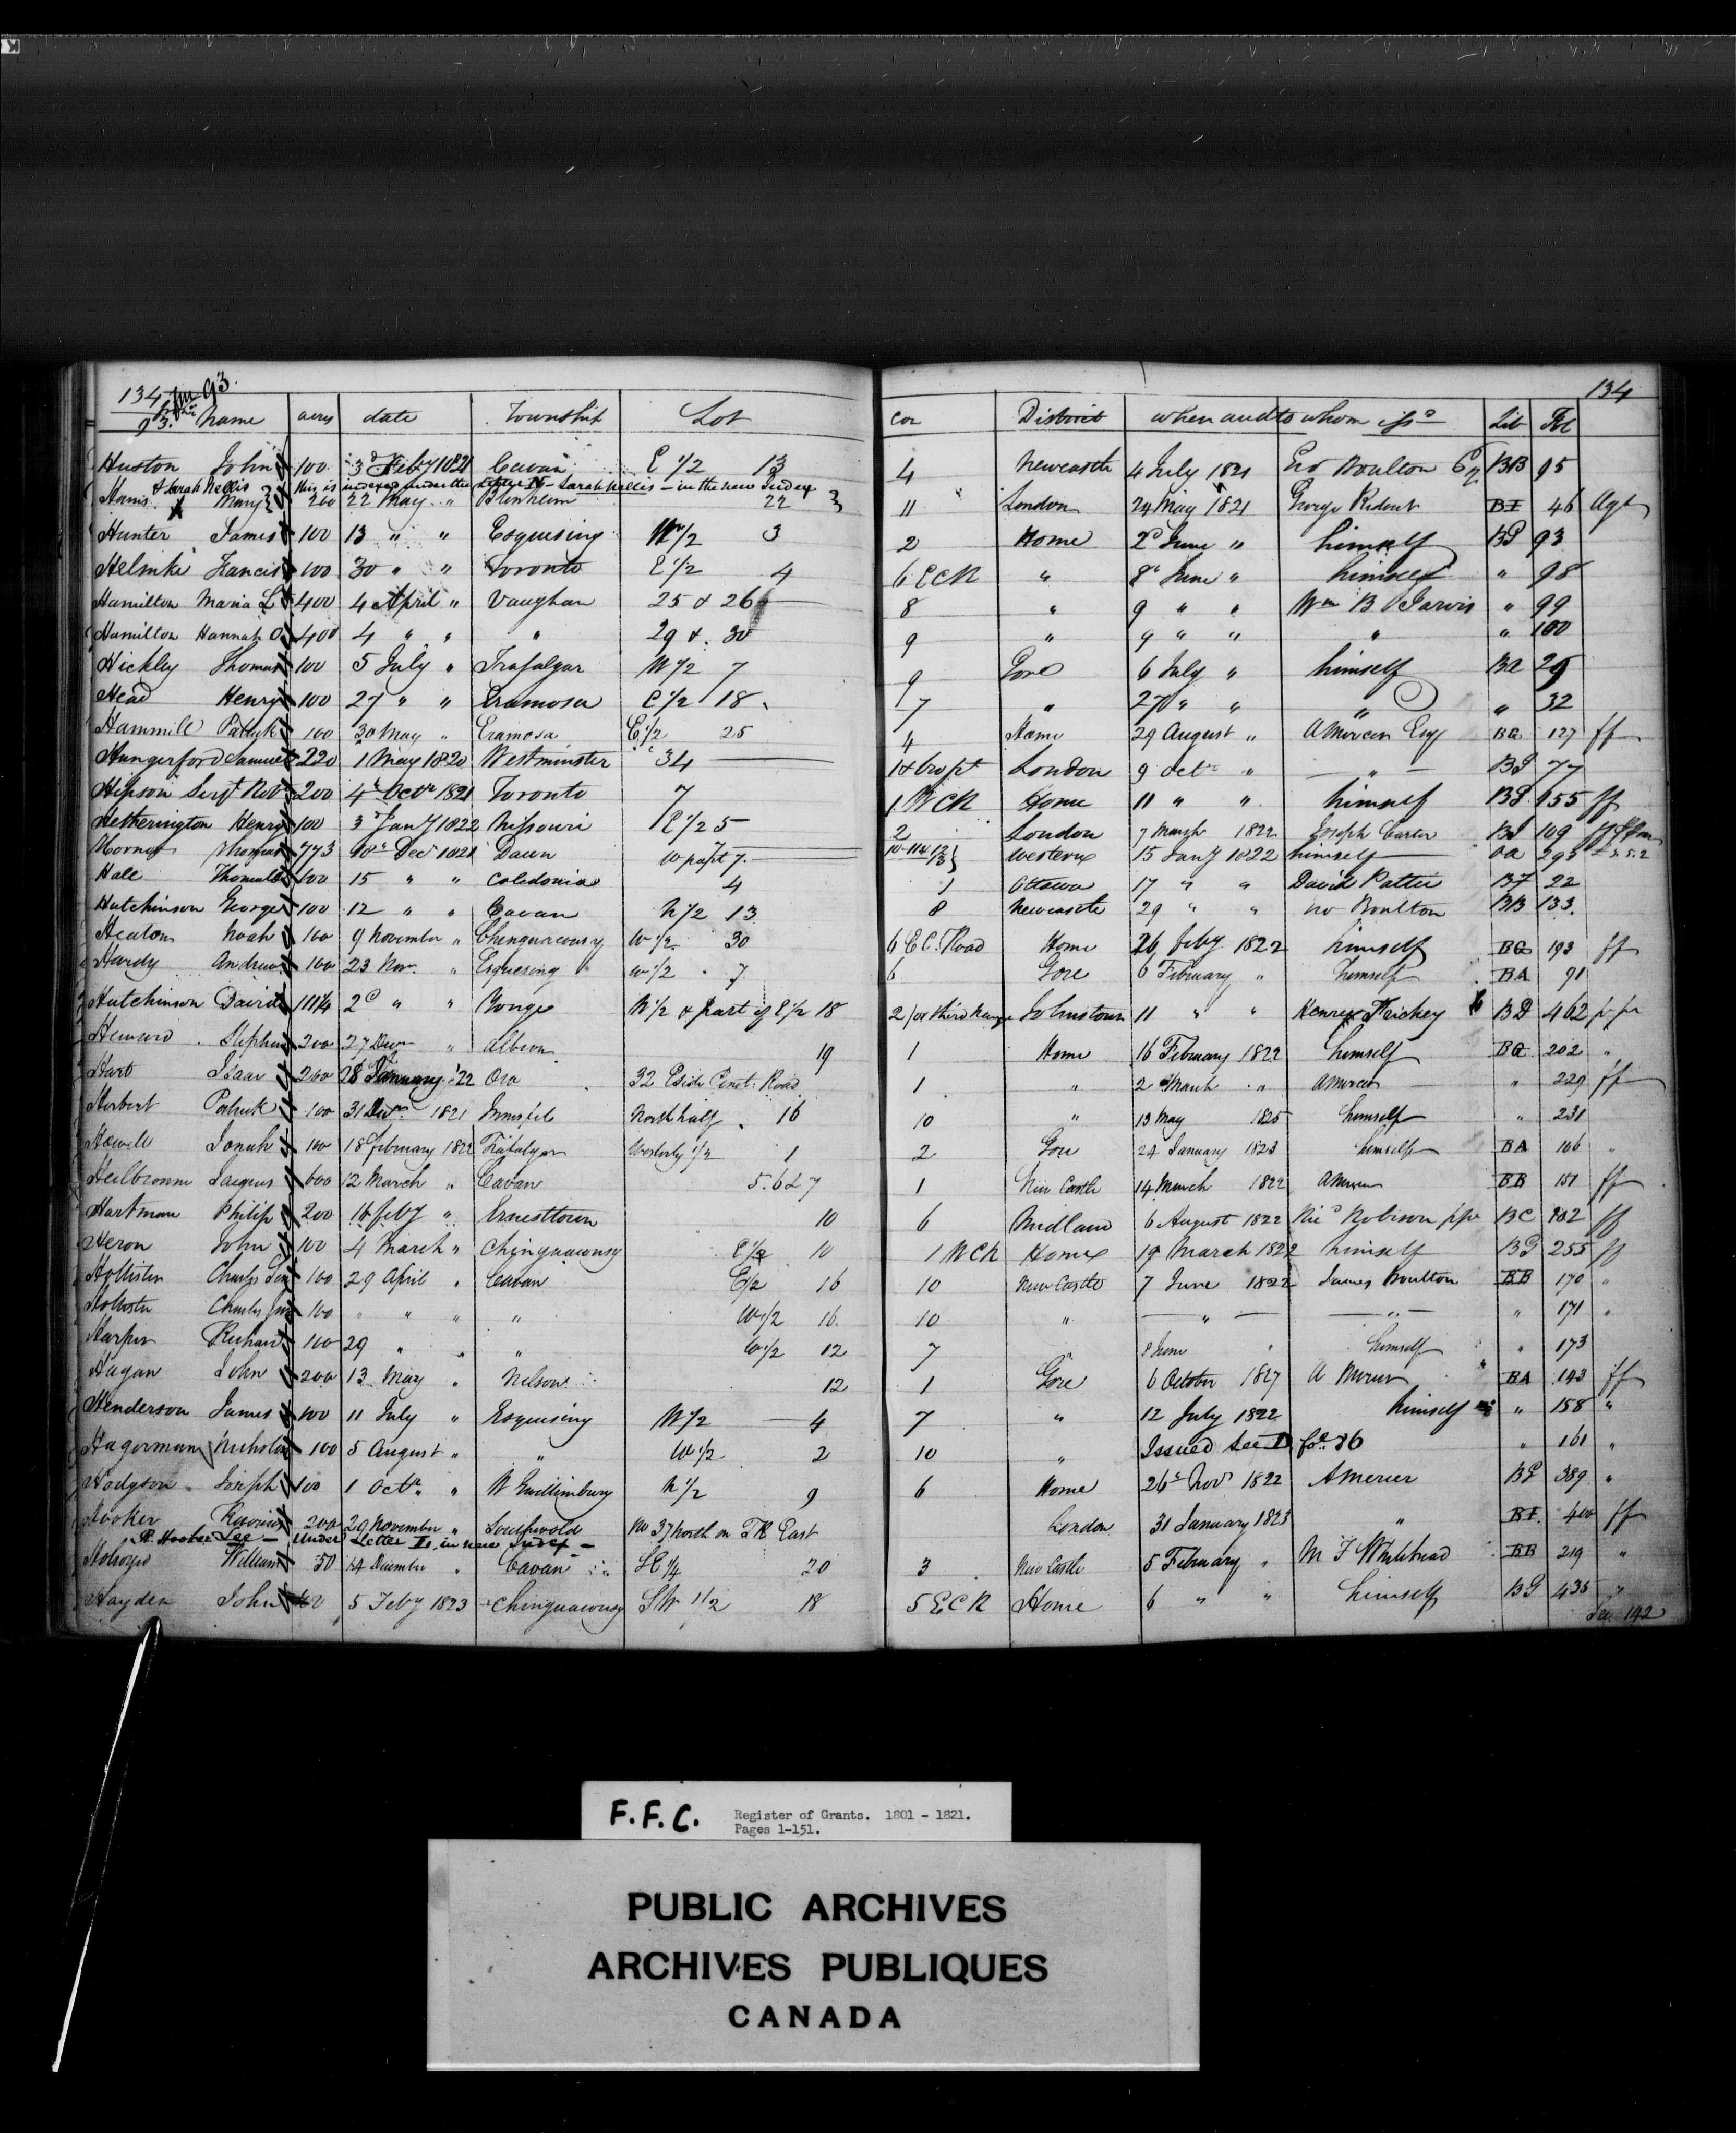 134 fm 93.
93. Name acres date Township Lot Con District when and to whom iss^d Lib Fol 134
Huston John 100 3^d Feby 1821 Cavan E 1/2 13 4 Newcastle 4 July 1821 Boulton BB 95
& Sarah Nellis this is indexed under the letter N - Sarah Nellis - in the new Index
Harris Mary 200 22 May " Blenheim 22 11 London 24 May 1821 George Ridout BI 46 Agt
Hunter James 100 13 " " Esquesing W 1/2 3 2 Home 2^d June " himself BG 93
Helmke Francis 100 30 " " Toronto E 1/2 4 6 ECR " 8^h June " himself " 98
Hamilton Maria L 400 4 April " Vaughan 25 & 26 8 " 9 " " Wm B Jarvis " 99
Hamilton Hannah O. 400 4 " " " 29 & 30 9 " 9 " " " " 100
Hickley Thomas 100 5 July " Trafalgar W 1/2 7 9 Gore 6 July " himself BA 29
Head Henry 100 27 " " Eramosa E 1/2 18 7 " 27 " " " " 32
Hammill Patrick 100 30 May " Eramosa E 1/2 25 4 Home 29 August " A Mercer Esq BG 127 ff
Hungerford Samuel 220 1 May 1820 Westminster 34 1 & bro pt London 9 Oct^r " — " — 77
Hipson Serjt Rob^t 200 4^h Oct^r 1821 Toronto 7 1 WCR Home 11 " " himself BG 155 ff
Hetherington Henry 100 3^d Jany 1822 Nissouri E 1/2 5 2 London 7 March 1822 Joseph Carter 109
Horner Thomas 773 Dec^r 1821 Dawn W pa^rt 7. Western 15 Jany 1822 himself 295
Hall Thomas 100 15 " " Caledonia 4 1 Ottawa 17 " " David Pattie BF 22
Hutchinson George 100 12 " " Cavan N 1/2 13 8 Newcastle 29 " " Boulton BB 133.
Heaton Noah 100 9 November " Chinguacousy W 1/2 30 6 E C. Road Home 26 feby 1822 himself BG 193 ff
Hardy Andrew 100 23 Nov. " Esquesing W 1/2 7 6 Gore 6 February " himself BA 91
Hutchinson David 111 1/4 2^d " " Yonge W 1/2 & part of E 1/2 18 2 / or third Range Johnstown 11 " " Henry Trickey BD 462
Heward Stephen 200 27 Dec^r " Albion 19 1 Home 16 February 1822 himself BG 202 "
Hart Isaac 200 28 January '22 Oro 32 E side Penet: Road 1 " 2 March " A Mercer " 229 ff
Herbert Patrick 100 31 Dec^r 1821 Innisfil North half 16 10 " 13 May 1825 himself " 231
Howell Jonah 100 18 february 1822 Trafalgar Westerly 1/2 1 2 Gore 24 January 1823 himself BA 106 "
Heilbronn Jacques 600 12 March " Cavan 5.6 & 7 1 New Castle 14 March 1822 A Mercer BB 151 ff
Hartman Philip 200 16 feby " Ernesttown 10 6 Midland 6 August 1822 Robison BC ff
Heron John 100 4 March " Chinguacousy E 1/2 10 1 WCR Home 19 March 1822 himself BG 255 ff
Hollister Charles Sen 100 29 April " Cavan E 1/2 16 10 New Castle 7 June 1822 James Boulton BB 170 "
Hollister Charles Jun 100 " " " " W 1/2 16. 10 " — " — — " — " 171 "
Harper Richard 100 29 " " " W 1/2 12 7 " 8 June " himself " 173
Hagan John 200 13 May " Nelson 12 1 Gore 6 October 1827 A Mercer BA 143 ff
Henderson James 100 11 July " Esquesing W 1/2 4 7 " 12 July 1822 himself " 158 "
Hagerman Nicholas 100 5 August " " W 1/2 2 10 " Issued See D fo^l. 36 " 161 "
Hodgson Joseph 100 1 Oct^r. " W Gwillimbury N 1/2 9 6 Home 26^h Nov^r 1822 A Mercer BG 389 "
Hooker 200 29 November " Southwold No 37 North on TR East London 31 January 1823 " BI. 400 ff
R Hooker Lee — Under Letter L, in new Index —
William 50 14 December " Cavan SE 1/4 20 3 New Castle 5 February " M F Whitehead BB 219 "
Hayden John 5 Feby 1823 Chinguacousy SW 1/2 18 5 ECR Home 6 " " himself BG 435 "
See 142
F.F.C. Register of Grants. 1801 - 1821.
Pages 1-151.
PUBLIC ARCHIVES
ARCHIVES PUBLIQUES
CANADA